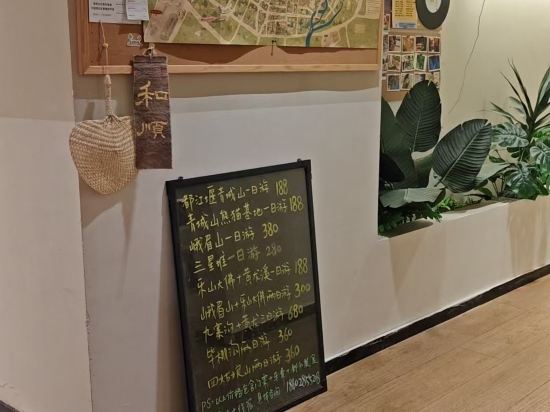 和
順
都江堰青城山一日游 188
青城山熊猫基地一日游 188
峨眉山一日游 380
三星堆一日游 280
乐山大佛+黄龙溪一日游 188
峨眉山+乐山大佛两日游 300
九寨沟+黄龙三日游 680
毕棚沟两日游 360
四姑娘山两日游 360
PS:以上价格包含门票+车费+